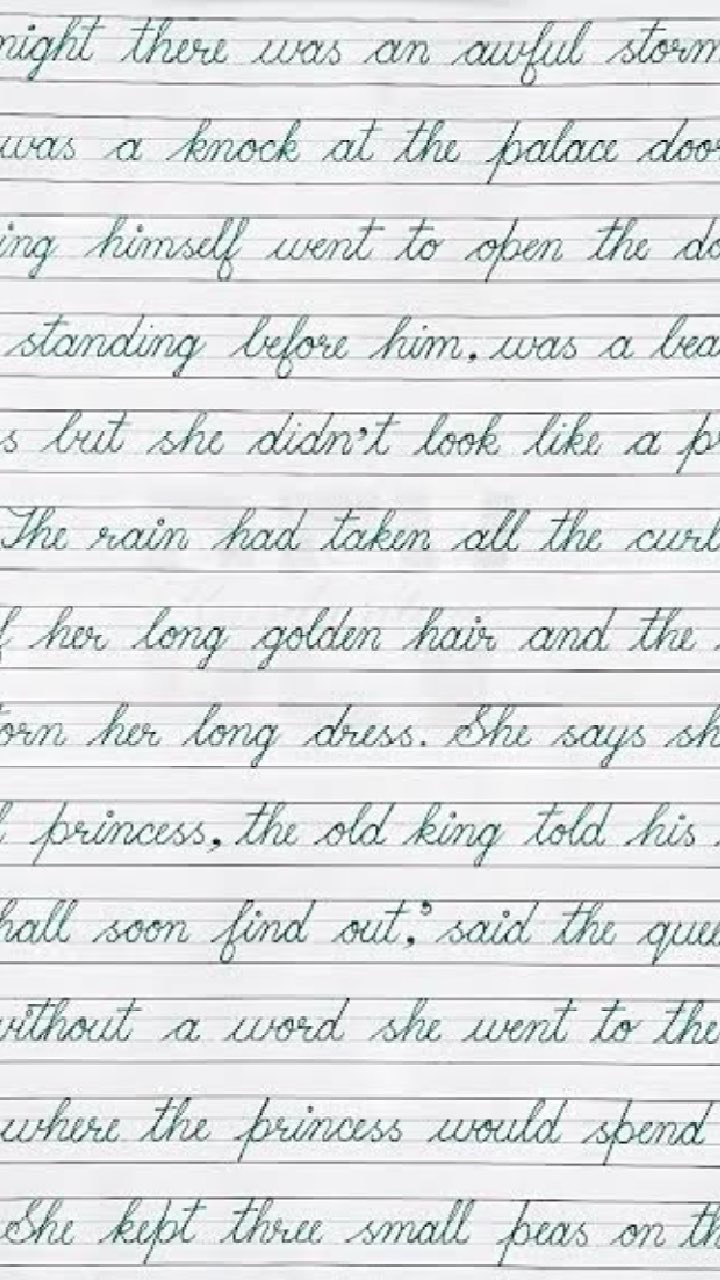 night there was an awful storm
was a knock at the palace door
ing himself went to open the do
standing before him, was a bea
s but she didn't look like a pr
The rain had taken all the curl
f her long golden hair and the
orn her long dress. She says sh
l princess, the old king told his
hall soon find out,' said the quee
without a word she went to the
where the princess would spend
She kept three small peas on th